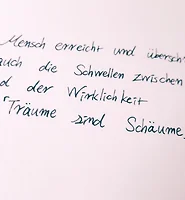 Mensch erreicht und übersch
auch die Schwellen zwischen
d der Wirklichkeit
"Träume sind Schäume